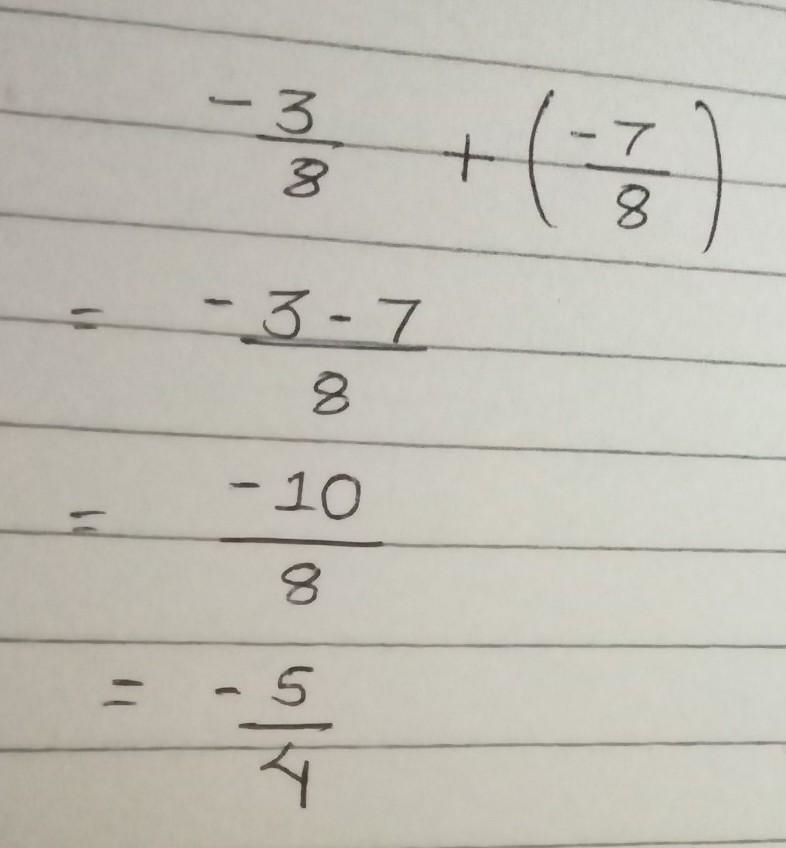 -3/8 + (-7/8)
= -3-7/8
= -10/8
= -5/4